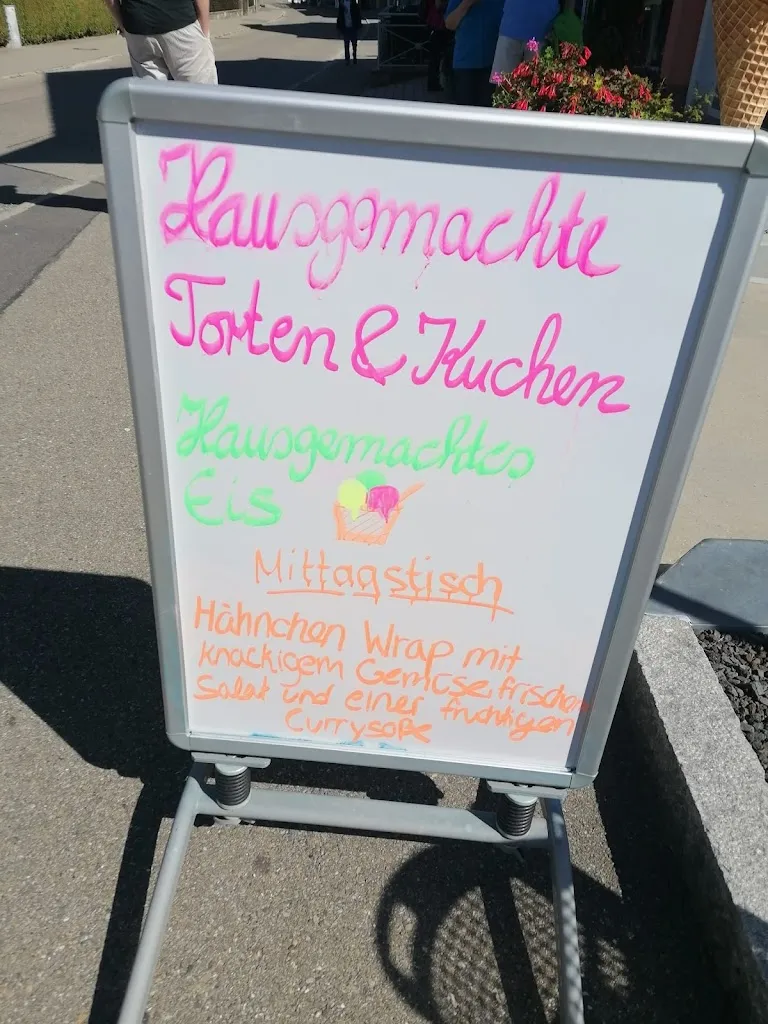 Hausgemachte
Torten & Kuchen
Hausgemachtes
Eis
Mittagstisch
Hähnchen Wrap mit
knackigem Gemüse, frischem
Salat und einer fruchtigen
Currysoße